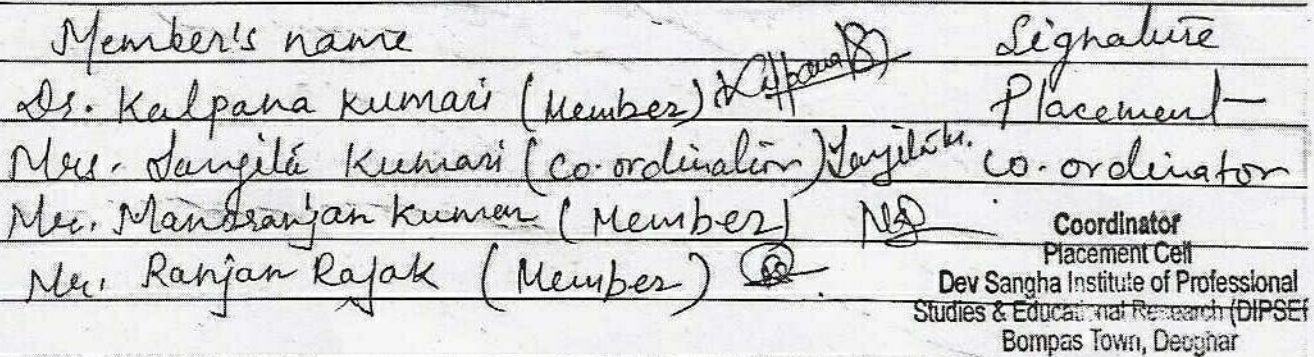 Member's name Signature
Dr. Kalpana Kumari (Member) Kalpana Placement
Mrs. Sangita Kumari (Co-ordination) Sangita Ku. Co-ordinator
Mr. Manoranjan Kumar (Member)
Mr. Ranjan Rajak (Member)
Coordinator
Placement Cell
Dev Sangha Institute of Professional
Studies & Educational Research (DIPSER
Bompas Town, Deoghar